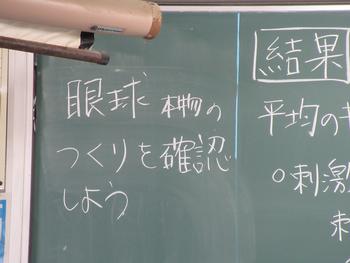 眼球 本物の
つくりを確認
しよう
結果
平均の
○刺激
刺